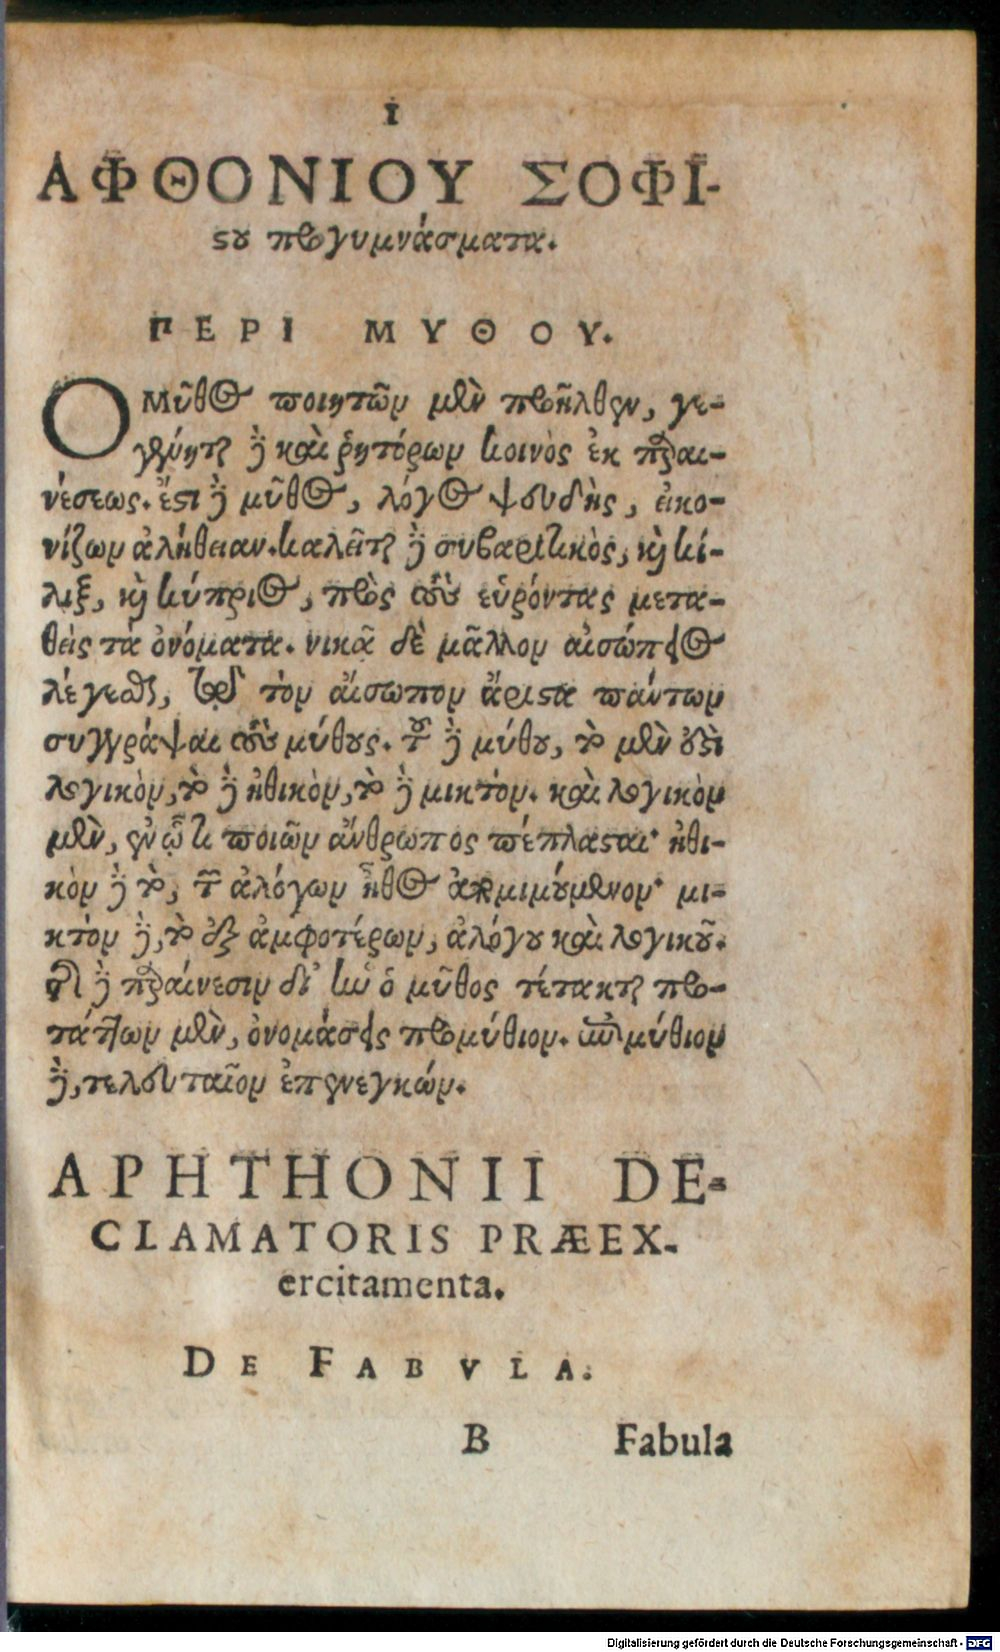 I
ΑΦΘΟΝΙΟΥ ΣΟΦΙ-
ϛοῦ προγυμνάσματα.
ΠΕΡΙ ΜΥΘΟΥ.
Ο Μῦθος ποιητῶν μὲν προῆλθεν, γε-
γένηται δὲ καὶ ῥητόρων κοινὸς ἐκ παραι-
νέσεως. ἔϛι δὲ μῦθος, λόγος ψευδὴς, εἰκο-
νίζων ἀλήθειαν. καλεῖται δὲ συβαριτικὸς, καὶ κί-
λιξ, καὶ κύπριος, πρὸς τοὺς εὑρόντας μετα-
θεὶς τὰ ὀνόματα. νικᾷ δὲ μᾶλλον αἰσώπειος
λέγεσθαι, τῷ τὸν αἴσωπον ἄριϛα πάντων
συγγράψαι τοὺς μύθους. τοῦ δὲ μύθου, τὸ μὲν ἐϛὶ
λογικὸν, τὸ δὲ ἠθικὸν, τὸ δὲ μικτόν. καὶ λογικὸν
μὲν, ἐν ᾧ τι ποιῶν ἄνθρωπος πέπλαϛαι· ἠθι-
κὸν δὲ τὸ, τῶν ἀλόγων ἦθος ἀπομιμούμενον· μι-
κτὸν δὲ, τὸ ἐξ ἀμφοτέρων, ἀλόγου καὶ λογικοῦ.
τὴν δὲ παραίνεσιν δι' ἣν ὁ μῦθος τέτακται προ-
τάττων μὲν, ὀνομάσεις προμύθιον. ἐπιμύθιον
δὲ, τελευταῖον ἐπενεγκών.
APHTHONII DE-
CLAMATORIS PRÆEX-
ercitamenta.
DE FABVLA.
B Fabula
Digitalisierung gefördert durch die Deutsche Forschungsgemeinschaft - DFG